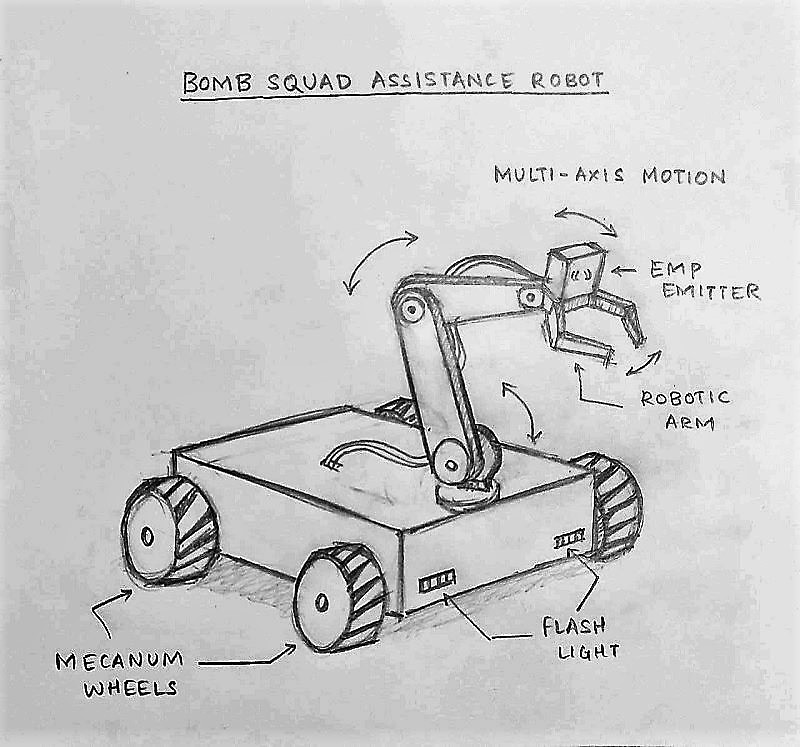 BOMB SQUAD ASSISTANCE ROBOT
MULTI-AXIS MOTION
EMP
EMITTER
ROBOTIC
ARM
FLASH
LIGHT
MECANUM
WHEELS